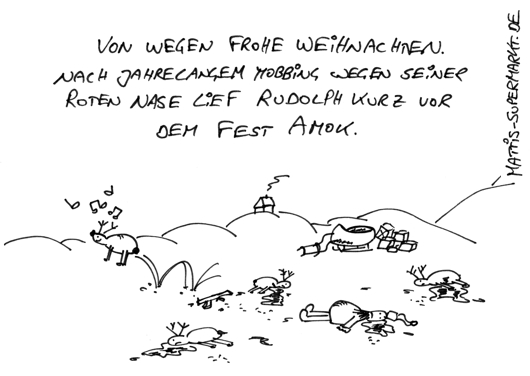 VON WEGEN FROHE WEIHNACHTEN.
NACH JAHRELANGEM MOBBING WEGEN SEINER
ROTEN NASE LIEF RUDOLPH KURZ VOR
DEM FEST AMOK.
MATTIS-SUPERMARKT.DE